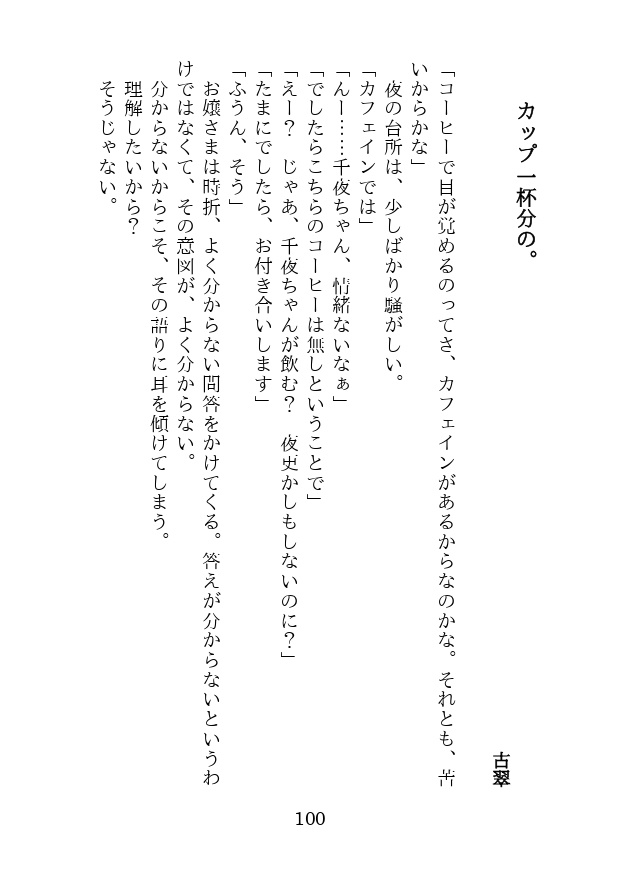 カップ一杯分の。
古翠
「コーヒーで目が覚めるのってさ、カフェインがあるからなのかな。それとも、苦
いからかな」
　夜の台所は、少しばかり騒がしい。
「カフェインでは」
「んー……千夜ちゃん、情緒ないなぁ」
「でしたらこちらのコーヒーは無しということで」
「えー？　じゃあ、千夜ちゃんが飲む？　夜更かしもしないのに？」
「たまにでしたら、お付き合いします」
「ふうん、そう」
　お嬢さまは時折、よく分からない問答をかけてくる。答えが分からないというわ
けではなくて、その意図が、よく分からない。
　分からないからこそ、その語りに耳を傾けてしまう。
　理解したいから？
　そうじゃない。
100